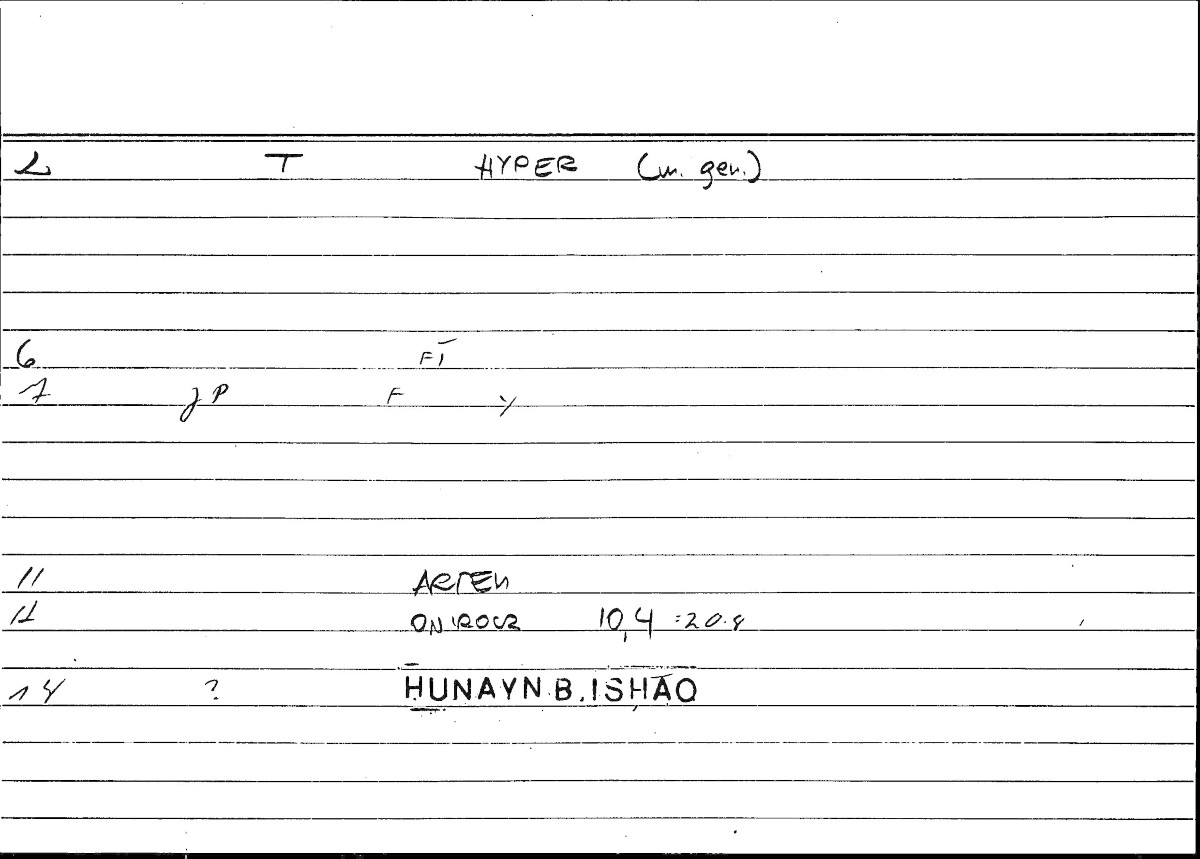 2 T HYPER (m. gen.)
6 FĪ
7 JP F Y
11 ARTEM
12 ONIROCR 10,4 =20.8
14 ? ḤUNAYN B. ISḤĀQ